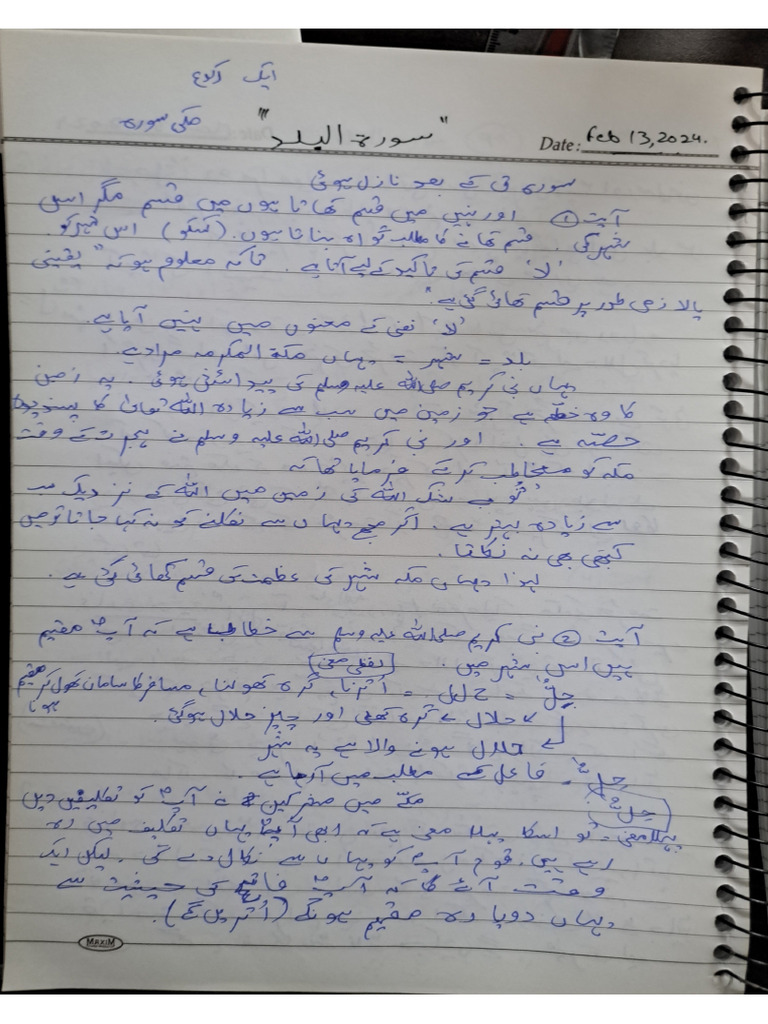 ایک رکوع
مکی سورہ
"سورۃ البلد"
Date: Feb 13, 2024.
سورہ ق کے بعد نازل ہوئی
آیت ① اور نہیں میں قسم کھاتا ہوں میں قسم مگر اسی
شہر کی. قسم کھانے کا مطلب گواہ بناتا ہوں. (کسکو) اس شہر کو.
'لا' قسم کی تاکید کے لیے آتا ہے. تاکہ معلوم ہو کہ "یقینی
یا لازمی طور پر قسم کھائی گئی ہے."
'لا' نفی کے معنوں میں نہیں آیا ہے.
بلد = شہر = یہاں مکۃ المکرمہ مراد ہے
یہاں نبی کریم صلی اللہ علیہ وسلم کی پیدائش ہوئی. یہ زمین
کا وہ خطّہ ہے جو زمین میں سب سے زیادہ اللہ تعالیٰ کا پسندیدہ
حصّہ ہے. اور نبی کریم صلی اللہ علیہ وسلم نے ہجرت کے وقت
مکہ کو مخاطب کرکے فرمایا تھا کہ
"تو بے شک اللہ کی زمین میں اللہ کے نزدیک سب
سے زیادہ بہتر ہے. اگر مجھے یہاں سے نکلنے کو نہ کہا جاتا تو میں
کبھی بھی نہ نکلتا.
لہذا یہاں مکہ شہر کی عظمت کی قسم کھائی گئی ہے.
آیت ② نبی کریم صلی اللہ علیہ وسلم سے خطاب ہے کہ آپؐ مقیم
ہیں اس شہر میں. (لفظی معنی)
حِلٌّ = ح ل ل = اُترنا، گرہ کھولنا، مسافر کا سامان کھول کر مقیم ہونا
حلال ← گرہ کھلی اور چیز حلال ہوگئی.
← حلال ہونے والا ہے یہ شہر
حِلٌّ. فاعل کے مطلب میں آ رہا ہے.
حِلٌّ مکّے میں مشرکین نے آپؐ کو تکلیفیں دیں
پہلا معنی - تو اسکا پہلا معنی ہے کہ ابھی آپؐ یہاں تکلیف میں رہ
رہے ہیں. قوم آپؐ کو یہاں سے نکال دے گی. لیکن ایک
وقت آئے گا کہ آپؐ فاتح کی حیثیت سے
یہاں دوبارہ مقیم ہونگے (اُتریں گے).
MAXIM